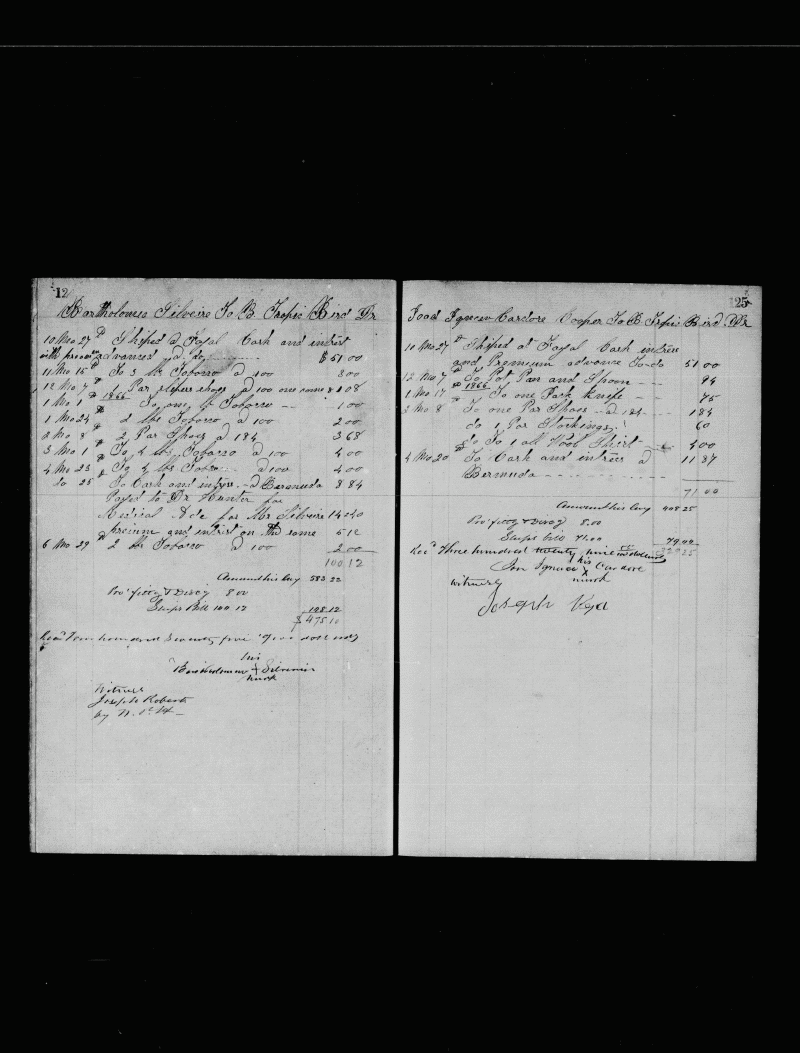 12
Bartholomew Silveire To B. Tropic Bird Dr
10 Mo 27th Shiped @ Fayal Cash and intrest
with premium advanced @ do $ 51 00
11 Mo 15th To 3 lbs Tobacco @ 100 3 00
12 Mo 7th 1 Par shoes @ 100 one same 8 1 08
1 Mo 1st 1866 To one lb Tobacco 1 00
1 Mo 24th 2 lbs Tobacco @ 100 2 00
2 Mo 8th 2 Par Shoes @ 184 3 68
3 Mo 1st To 4 lbs Tobacco @ 100 4 00
4 Mo 23 To 4 lbs Tobacco @ 100 4 00
do 25th To Cash and intree @ Bermuda 8 84
Payed to Dr Hunter for
Medical Ade for Mr Silveire 14 240
preium and intrist on the same 5 12
6 Mo 29th 2 lbs Tobacco @ 100 2 00
100 12
Amount his lay 583 22
8.00
Ships Bill 100.12 108 12
$ 475 10
Rec'd Four hundred seventy five dollars
his
+ Silveire
mark
Witness
Joseph Roberts
by
125
Joao Ignacio Cardore Cooper To B. Tropic Bird Dr
10 Mo 27th Shiped at Fayal Cash intree
and Premium advance To do 51 00
12 Mo 7th To Pot Pan and Spoon 94
1 Mo 17th 1866 To one Pack Knife 75
2 Mo 8th To one Par Shoes @ 184 1 84
do 1 Par Stockings 60
do To 1 all Wool Shirt 4 00
4 Mo 20th To Cash and intrees @ 11 87
Bermuda
71 00
Amount his lay 408 25
8.00
Ships bill 71.00 79 00
329 25
Rec'd Three hundred twenty nine 25/100 dollars
his
Ignacio X Cardore
mark
witness
Joseph Vega